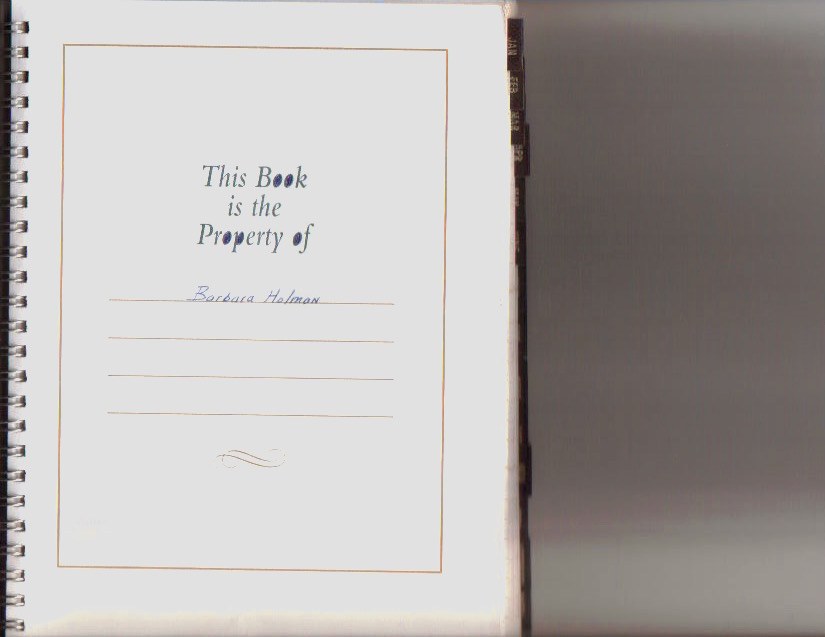 This Book
is the
Property of
Barbara Holman
JAN
FEB
MAR
APR